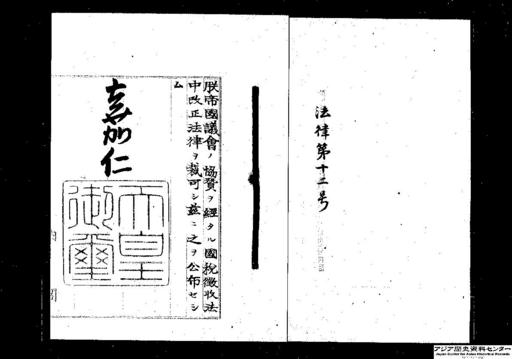 法律第十二号
朕帝國議會ノ協賛ヲ經タル國税徴收法
中改正法律ヲ裁可シ茲ニ之ヲ公布セシ
ム
嘉仁
天皇
御璽
内
閣
アジア歴史資料センター
Japan Center for Asian Historical Records